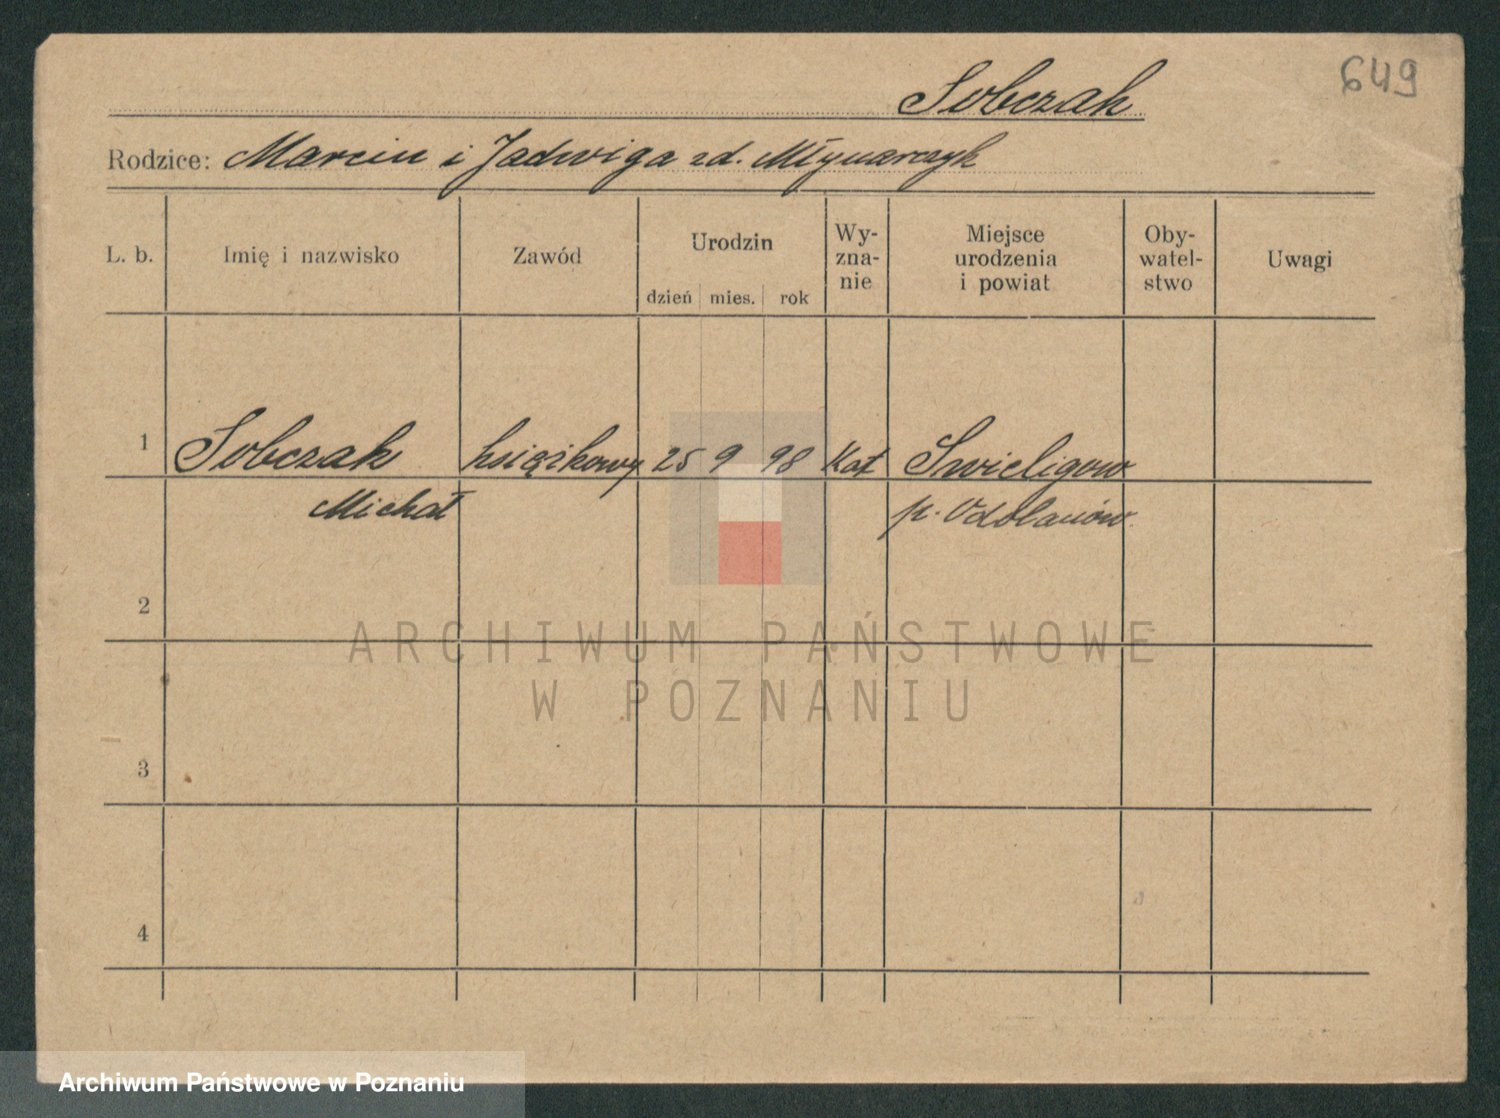 649
Sobczak
Rodzice: Marcin i Jadwiga zd. Młynarczyk
L. b.
Imię i nazwisko
Zawód
Urodzin
dzień mies. rok
Wy-
zna-
nie
Miejsce
urodzenia
i powiat
Oby-
watel-
stwo
Uwagi
1 Sobczak książkowy 25 9 98 Kat Swieligow
Michał p. Odolanów
2
ARCHIWUM PAŃSTWOWE
W POZNANIU
3
4
Archiwum Państwowe w Poznaniu